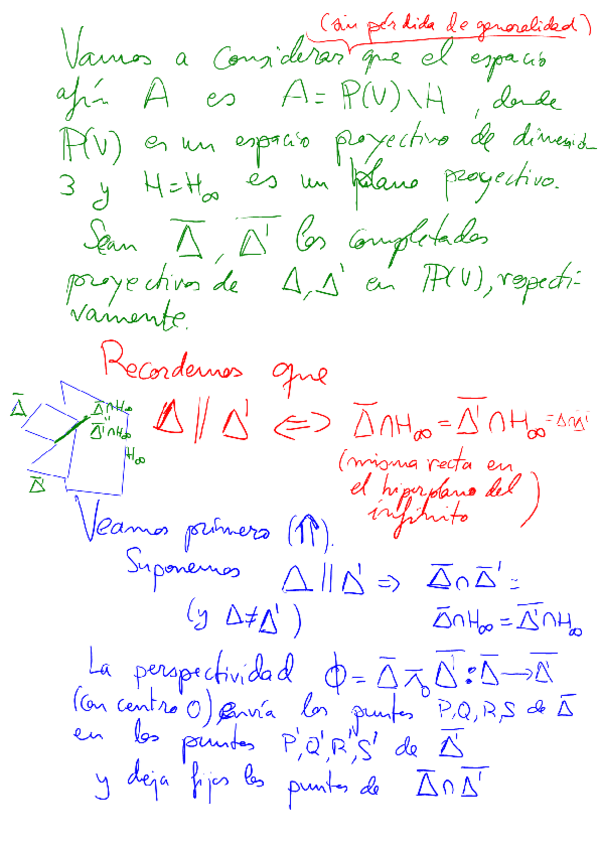 (sin pérdida de generalidad)
Vamos a considerar que el espacio
afín A es A = P(V) \ H , donde
P(V) es un espacio proyectivo de dimensión
3 y H = H∞ es un plano proyectivo.
Sean Δ̅ , Δ̅' los completados
proyectivos de Δ, Δ' en P(V), respecti-
vamente.
Recordemos que
Δ // Δ' <=> Δ̅∩H∞ = Δ̅'∩H∞ = Δ̅∩Δ̅'
(misma recta en
el hiperplano del
infinito)
Δ̅
Δ̅∩H∞
"
Δ̅'∩H∞
H∞
Δ̅'
Veamos primero (⇑).
Suponemos Δ // Δ' => Δ̅∩Δ̅' =
(y Δ≠Δ') Δ̅∩H∞ = Δ̅'∩H∞
La perspectividad ϕ = Δ̅ ⊼₀ Δ̅' : Δ̅ → Δ̅'
(con centro O) envía los puntos P,Q,R,S de Δ̅
en los puntos P',Q',R',S' de Δ̅'
y deja fijos los puntos de Δ̅∩Δ̅'